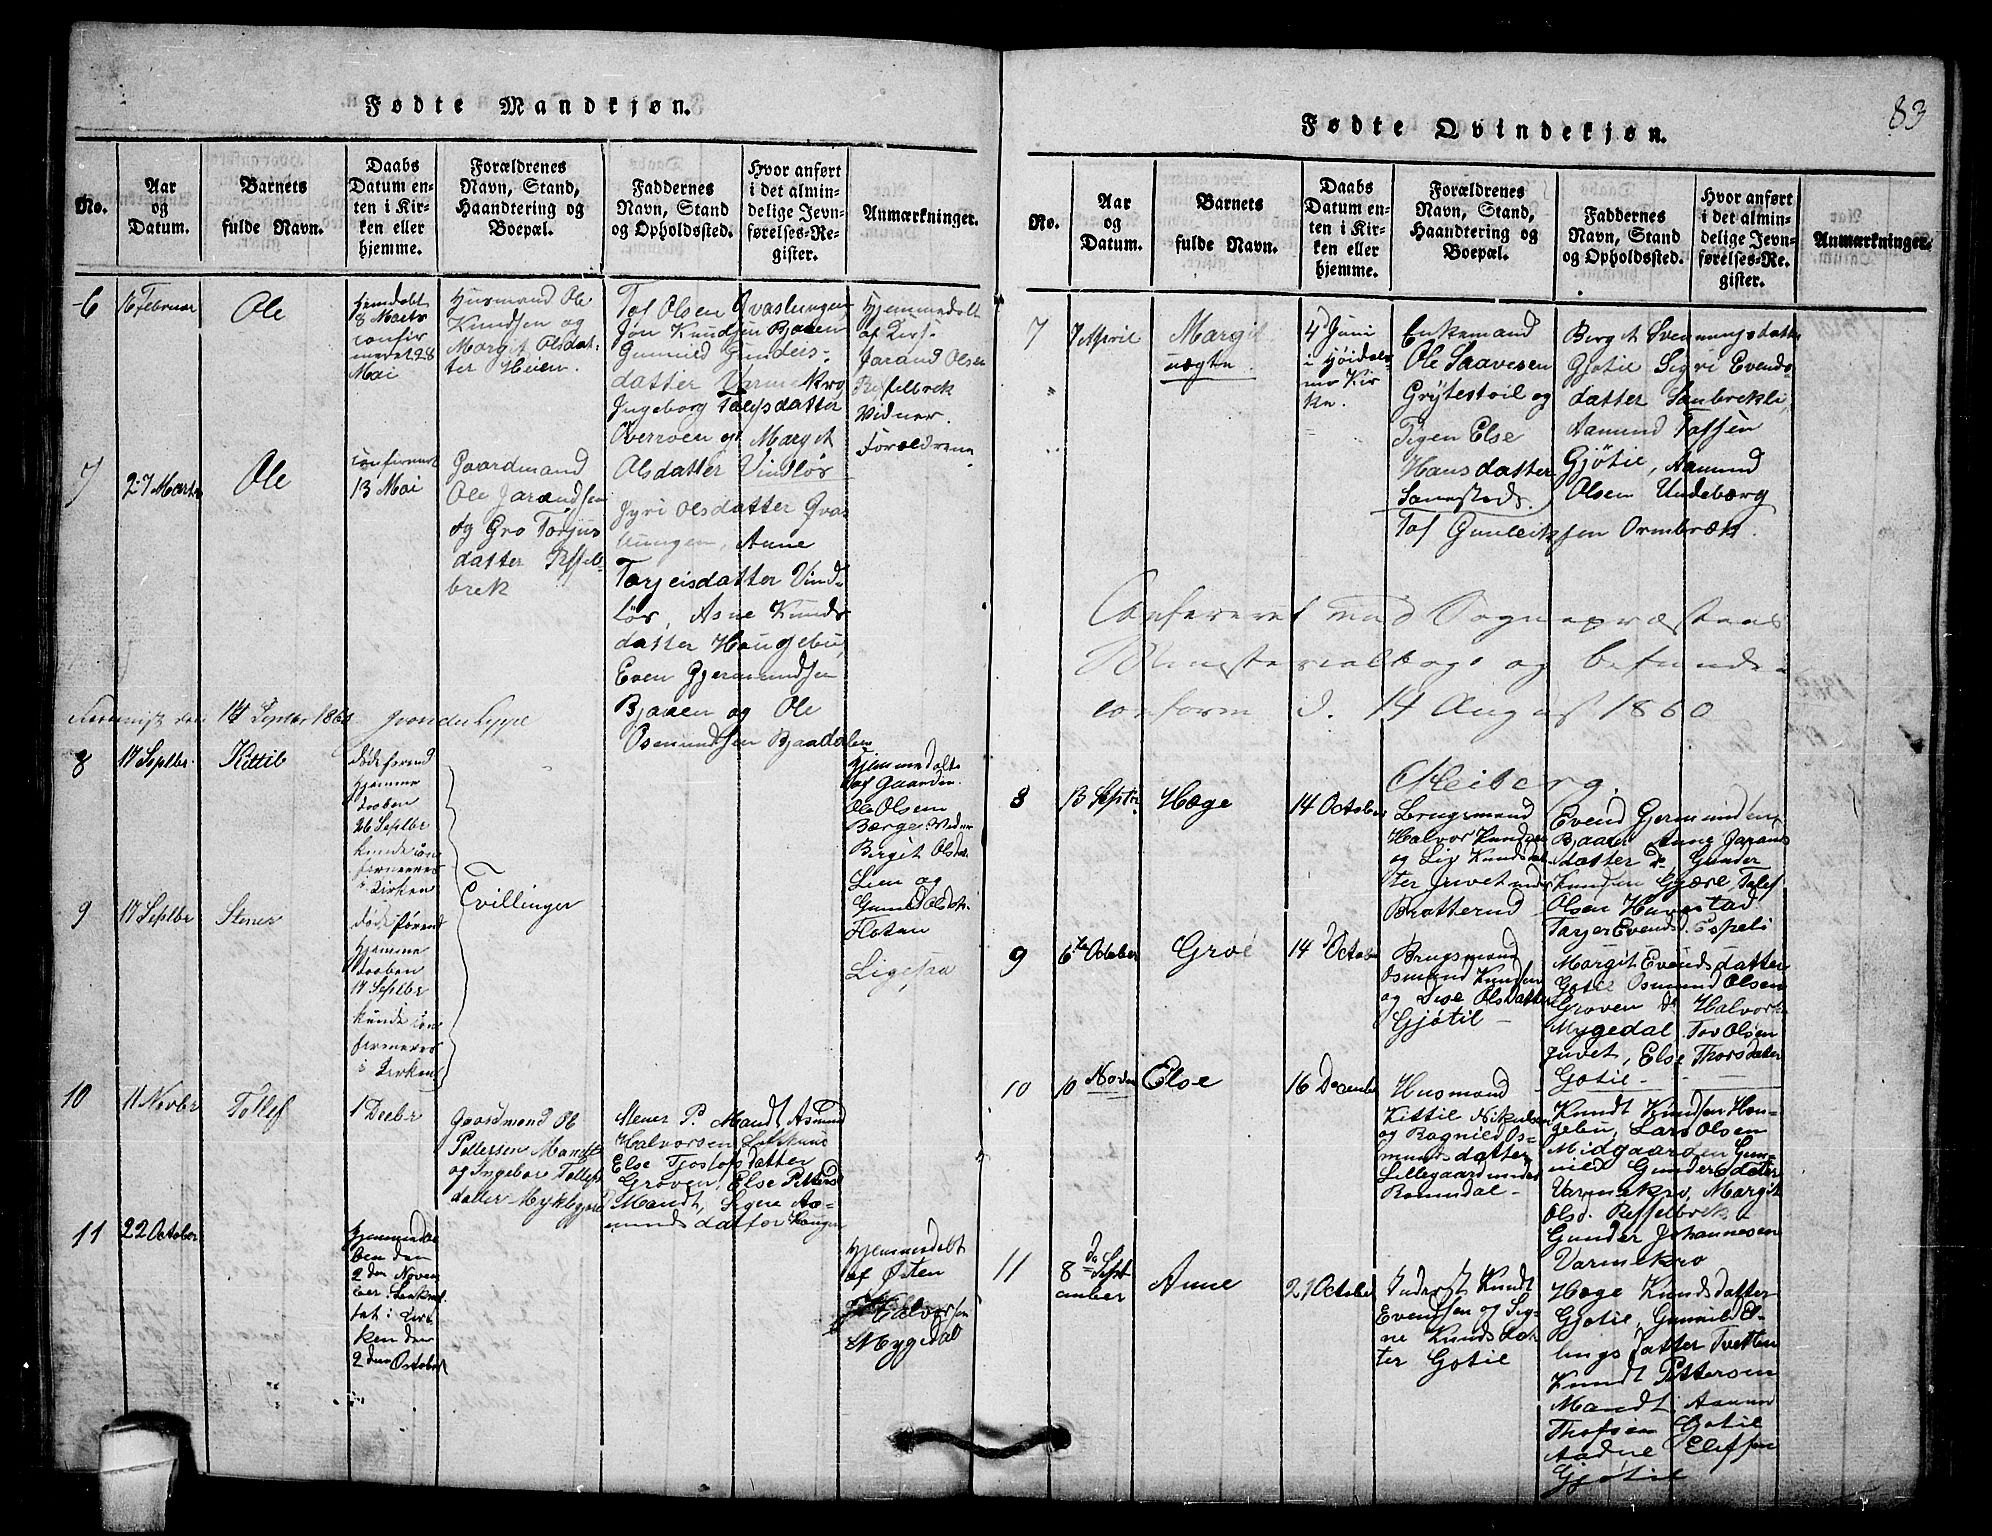 Fødte Mandkjøn.
No.
Aar
og
Datum.
Barnets
fulde Navn.
Daabs
Datum en-
ten i Kir-
ken eller
hjemme.
Forældrenes
Navn, Stand,
Haandtering og
Boepæl.
Faddernes
Navn, Stand
og Opholdssted.
Hvor anført
i det almin-
delige Jevn-
førelses-Re-
gister.
Anmærkninger.
6
16 Februar
Ole
Hjemdøbt
8 Marts
confir
meret 28
Mai
Husmand Ole
Knudsen og
Margit Olsdat-
ter Heien.
Tof Olsen Qvaslungen
Jøn Knudsen Bjaaen
Gunnild Gundeis-
datter Varmekro,
Ingeborg Talefsdatter
Overroen og Margit
Olsdatter Vindlös
Hjemmedøbt
af Kirks.
Jarand Olsen
Reffelbrek
Vidner.
Forældrene
7
27 Marts
Ole
13 Mai
Gaardmand
Ole Jarandsen
og Gro Torjus
datter Reffel-
brek
Jyri Olsdatter Qvas
lungen, Anne
Tarjeisdatter Vind-
lös, Asne Knuds
datter Haugebu,
Even Gjermundsen
Bjaaen og Ole
Osmundsen Bjaadalen
14 Septbr 1860
8
17 Septbr.
Kittil
døde forend
hjemme
daaben
26 Septbr
kunde con
fermeres
i Kirken
Tvillinger
Hjemmedøbt
af Gaardm.
Ole Olsen
Børge. Vidner
Birgit Olsd.
Lien og
Gunild Olsdt.
Floten
9
17 Septbr
Stener
døde førend
hjemme
daaben
17 Septbr
kunde con
fermeres
i Kirken
Ligesaa
10
11 Novbr
Tollef
1 Decbr
Gaardmand Ol
Pettersen Mandt
og Ingebor Tollefs
datter Myklegaard
Stener P. Mandt Asmund
Halvorsen
Else Tjostofsdatter
Groven, Else Petters
Mandt, Signe As-
munds datter Haugen
11
22 October
Hjemmedø
ben den
2 den Novem
ber
tet i Kir
ken den
2 den October
Hjemmedøbt
af Østen
Halvorsen
Mygedal
83
Fødte Qvindekjøn.
No.
Aar
og
Datum.
Barnets
fulde Navn.
Daabs
Datum en-
ten i Kir-
ken eller
hjemme.
Forældrenes
Navn, Stand,
Haandtering og
Boepæl.
Faddernes
Navn, Stand
og Opholdssted.
Hvor anført
i det almin-
delige Jevn-
førelses-Re-
gister.
Anmærkninger.
7
7 April
Margit
uægte.
4 Juni
i Høidals-
mo Kir
ke.
Enkemand
Ole Saavesen
Grytestøil og
Pigen Else
Hansdatter
Berg it Svenningsdatter
Gjøtil Sigri Evends-
datter Sanbrekke,
Aamund Tofsen
Gjøtil, Aamund
Olsen Undeborg
Tof Gunleiksen Ormbræk.
Confereret med Sognepræstens
Ministerialbog og befunden
conform d. 14 August 1860
Kleiberg.
8
13 Septbr
Hæge
14 October
Brugsmand
Halvor Knudsen
og Liv Knudsdat
ter Juvet under
Bratterud
Evend Gjermundsen
Bjaaen Anne Jarands
datter do Gunder
Knudsen Gjære, Talef
Olsen Havestad
Tarjer Evends. Espeli
9
6te October
Groe
14 October
Brugsmand
Osmund Knudsen
og Live Olsdatter
Gjøtil -
Margit Evends datter
Gøtil Osmund Olsen
Groven do Halvor
Mygedal Tov Olsen
Juvet, Else Thorsdatter
Gøtil -
10
10 Novbr
Else
16 December
Husmand
Kittil Nikulsen
og Ragnild Os-
munds datter
Lillegaard under
Romedal -
Knudt Knudsen Hau-
gebu, Lars Olsen
Midgaarden Gun-
nild Gundersdatter
Varmekro, Margit
Olsd. Reffelbrek
Gunder Johannesen
Varmekro
11
8de Sept
ember
Anne
21 October
Inderst Knudt
Evendsen og Sig-
ne Knuds dat
ter Gøtil
Hæge Knuds datter
Gjøtil, Gunnild E-
lings datter Tvetten
Knudt Pettersen
Mandt, Aamund
Thofsen Gøtil
Aadne Eleffsen
Gjøtil